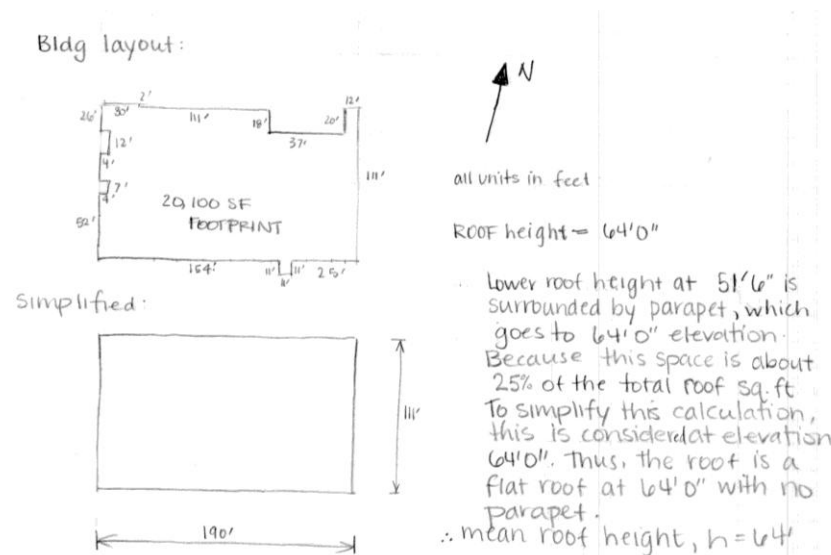 Bldg layout:
N
2'
12'
26'
30'
111'
18'
20'
37'
12'
4'
7'
4'
111'
52'
20,100 SF
FOOTPRINT
154'
11'
11'
25'
all units in feet
ROOF height = 64'0"
Lower roof height at 51'6" is
surrounded by parapet, which
goes to 64'0" elevation.
Because this space is about
25% of the total roof sq.ft
To simplify this calculation,
this is considered at elevation
64'0". Thus, the roof is a
flat roof at 64'0" with no
parapet.
∴ mean roof height, h = 64'
Simplified:
111'
190'